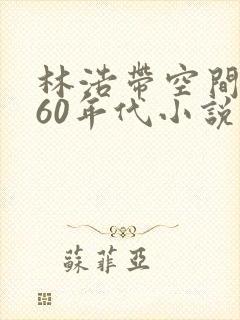 林浩帶空間
60年代小說
蘇菲亞